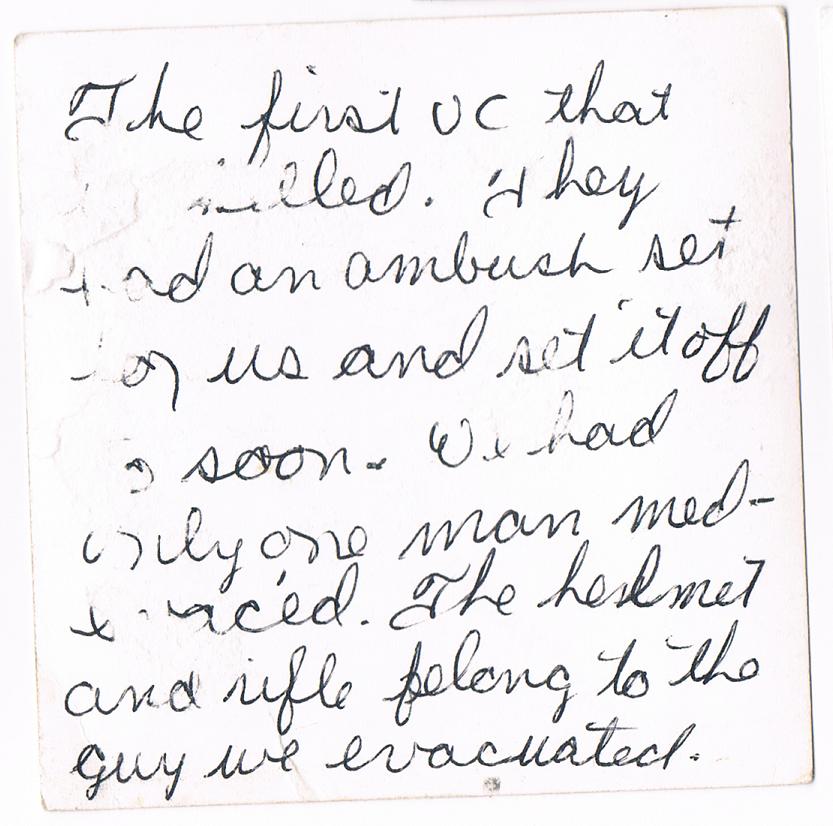 The first VC that
killed. They
had an ambush set
for us and set it off
soon. We had
only one man med-
evaced. The helmet
and rifle belong to the
guy we evacuated.